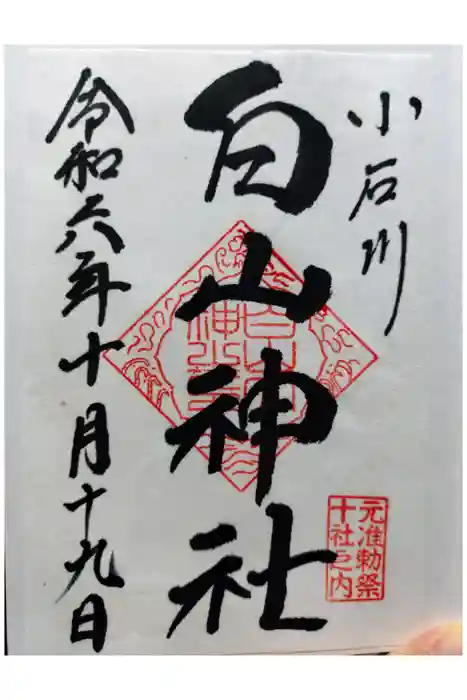 小石川
白山神社
令和六年十月十九日
元准勅祭
十社之内